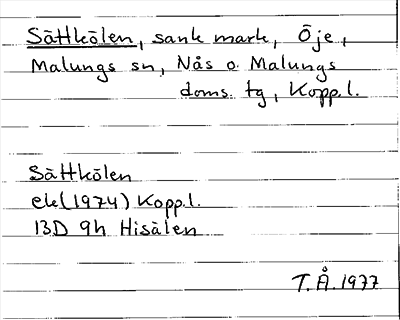 Sättkölen, sank mark, Öje,
Malungs sn, Nås o Malungs
doms. tg, Kopp.l.
Sättkölen
ek (1974) Kopp.l.
13D 9h Hisälen
T.Å. 1977